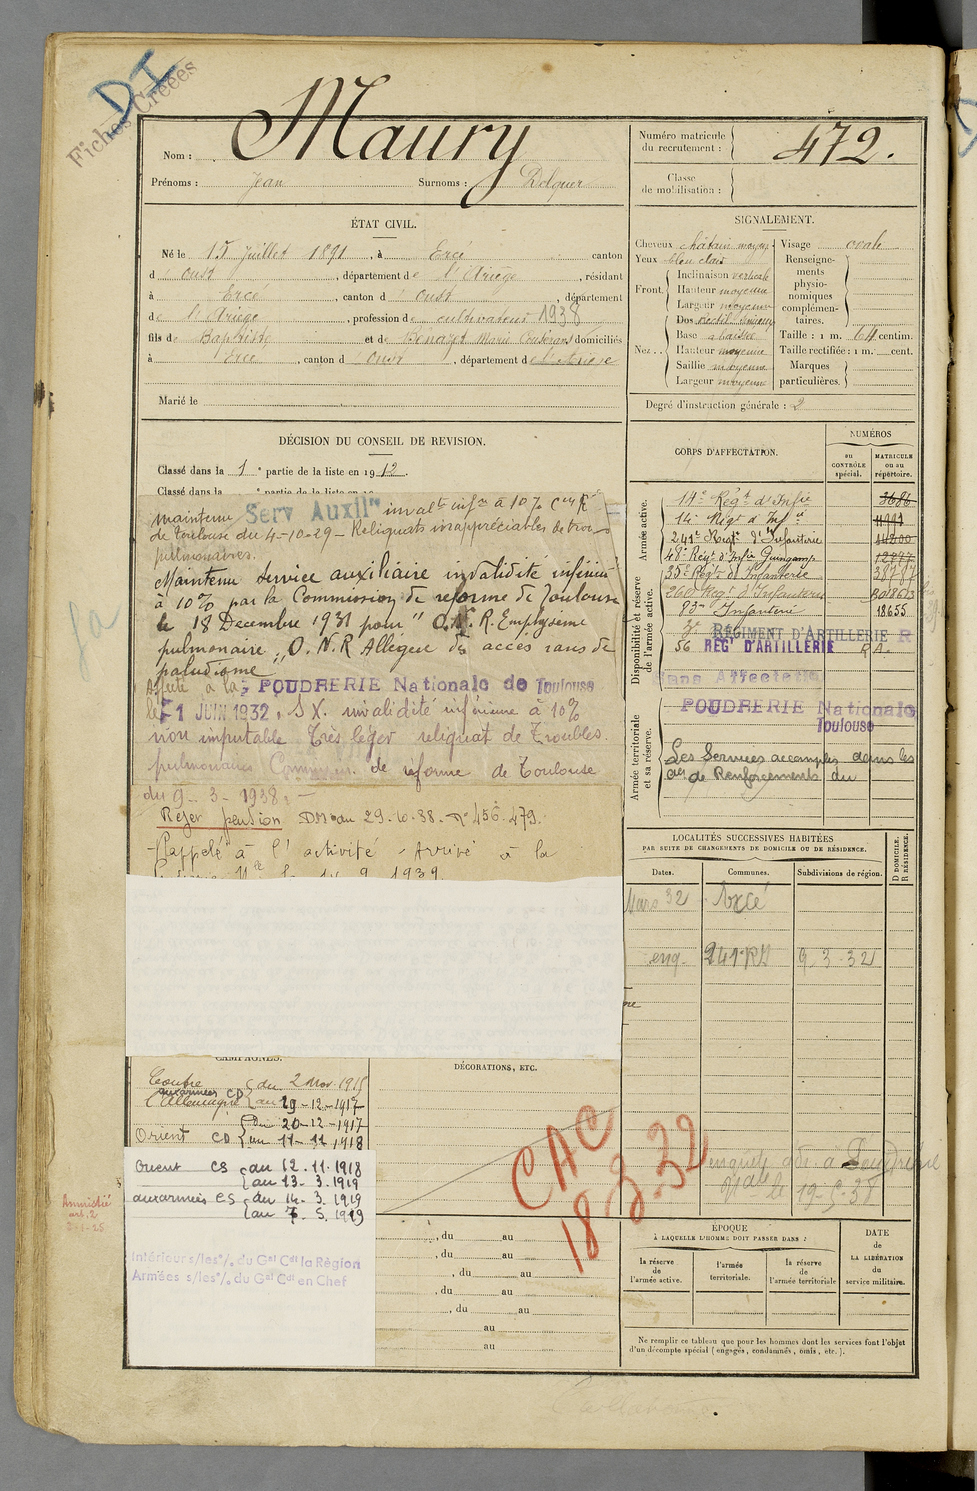 DI
Fiches Créées
Nom : Maury
Prénoms : Jean Surnoms : Delquer
Numéro matricule du recrutement : 472.
Classe de mobilisation :
ÉTAT CIVIL.
Né le 15 Juillet 1891, à Ercé canton
d'Oust, département de l'Ariège, résidant
à Ercé, canton d'Oust, département
de l'Ariège, profession de cultivateur 1938
fils de Baptiste et de Bénazet Marie domiciliés
à Ercé, canton d'Oust, département de l'Ariège
Marié le
SIGNALEMENT.
Cheveux châtain moyen
Yeux bleu clair
Front. Inclinaison verticale
Hauteur moyenne
Largeur moyenne
Nez.. Dos
Base
Hauteur moyenne
Saillie moyenne
Largeur moyenne
Visage ovale
Renseignements physionomiques complémentaires.
Taille : 1 m. 64 centim.
Taille rectifiée : 1 m. cent.
Marques particulières.
Degré d'instruction générale : 2
DÉCISION DU CONSEIL DE REVISION.
Classé dans la 1e partie de la liste en 1912.
Classé dans la e partie de la liste en 19
maintenu Serv Auxilre invalté infre à 10% Con R
de Toulouse du 4-10-29 - Reliquats inappréciables de
pulmonaires.
Maintenu service auxiliaire invalidité inférieure
à 10% par la Commission de reforme de Toulouse
le 18 Decembre 1931 pour " O.N.R. Emphyseme
pulmonaire " O.N.R Allegue des accès rares de
paludisme
Affecté à la POUDRERIE Nationale de Toulouse
le 1 JUIN 1932. SX. invalidité inférieure à 10%
non imputable Très léger reliquat de Troubles
pulmonaires Commission de réforme de Toulouse
du 9-3-1938 -
Rejet pension DM du 29.10.38. N° 456.479.
Rappelé à l'activité Arrivé à la
9 1939.
CORPS D'AFFECTATION.
NUMÉROS
au CONTRÔLE spécial.
MATRICULE ou au répertoire.
Armée active.
14e Régt d'Infie 3686
14e Régt d'Infie
241e Regt d'Infanterie 14200
48e Regt d'Infie Guingamp
Disponibilité et réserve de l'armée active.
35e Regt d'Infanterie 38787
260 Regt d'Infanterie
83me Infanterie 18655
3e RÉGIMENT D'ARTILLERIE R
56 REGt D'ARTILLERIE R A.
Sans Affectation
POUDRERIE Nationale
Toulouse
Armée territoriale et sa réserve.
Les Services accomplis dans les
de Renforcements du
LOCALITÉS SUCCESSIVES HABITÉES
PAR SUITE DE CHANGEMENTS DE DOMICILE OU DE RÉSIDENCE.
D DOMICILE. R RÉSIDENCE.
Dates. Communes. Subdivisions de région.
Mars 32 Ercé
enq. 241 RD 9.3.32
CAMPAGNES.
Contre l'Allemagne
aux armées CD du 2 Nov. 1915
au 19-12-1917
Orient CD du 20-12-1917
au 11-11-1918
Orient CS du 12.11.1918
au 13.3.1919
aux armées CS du 14.3.1919
au 7.5.1919
Intérieur s/les o/s du Gal Cdt la Région
Armées s/les o/s du Gal Cdt en Chef
Amnistié
art. 2
3-1-25
DÉCORATIONS, ETC.
CAC
18.3.32
enquete adr. a Poudrerie
Nale le 19-5-38
, du au
, du au
, du au
, du au
, du au
au
au
ÉPOQUE
À LAQUELLE L'HOMME DOIT PASSER DANS :
la réserve de l'armée active.
l'armée territoriale.
la réserve de l'armée territoriale
DATE de LA LIBÉRATION du service militaire.
Ne remplir ce tableau que pour les hommes dont les services font l'objet
d'un décompte spécial (engagés, condamnés, omis, etc.).